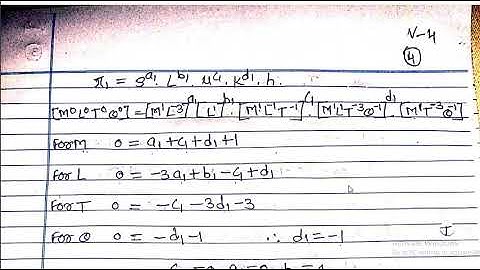 V-4
4
π₁ = ρ^a₁. L^b₁. μ^c₁. k^d₁. h.
[M⁰L⁰T⁰θ⁰] = [M¹L⁻³]^a₁ [L¹]^b₁. [M¹L⁻¹T⁻¹]^c₁. [M¹L¹T⁻³θ⁻¹]^d₁. [M¹T⁻³θ⁻¹]
For M 0 = a₁+c₁+d₁+1
For L 0 = -3a₁+b₁-c₁+d₁
For T 0 = -c₁-3d₁-3
For θ 0 = -d₁-1 ∴ d₁=-1